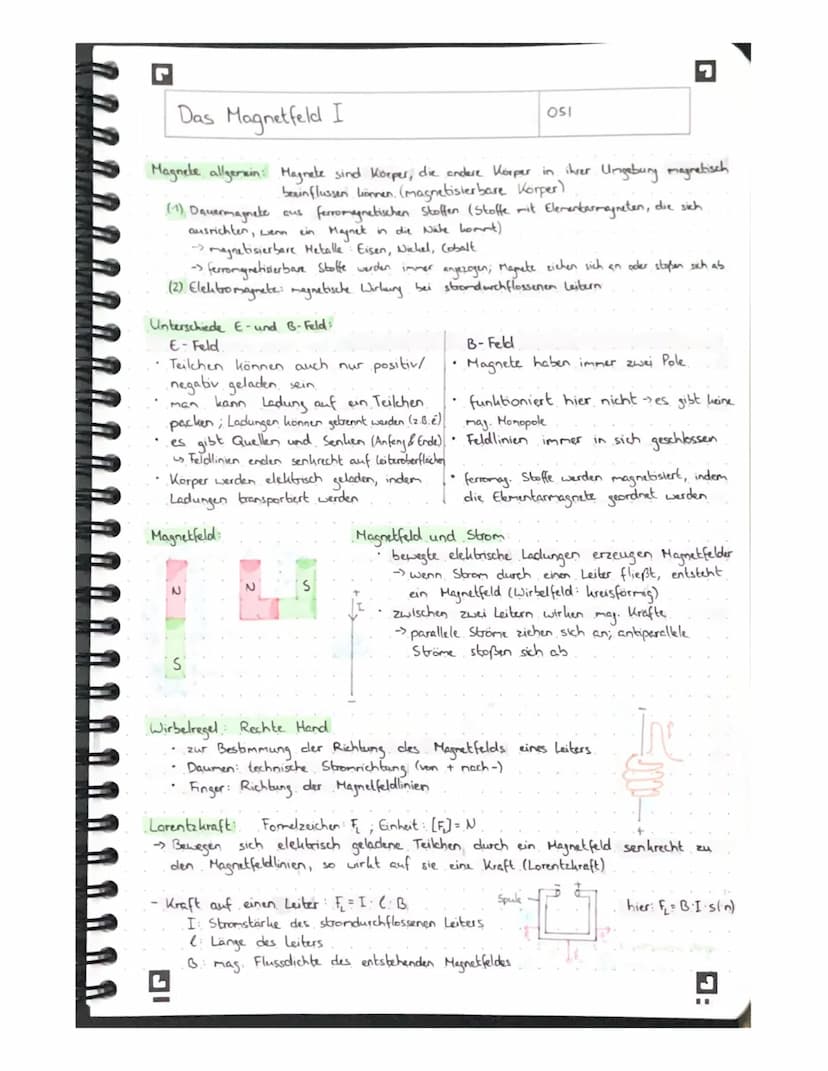 Das Magnetfeld I
051
Magnete allgemein: Magnete sind Körper, die andere Körper in ihrer Umgebung magnetisch
beeinflussen können. (magnetisierbare Körper)
(1) Dauermagnete aus ferromagnetischen Stoffen (Stoffe mit Elementarmagneten, die sich
ausrichten, wenn ein Magnet in die Nähe kommt)
→ magnetisierbare Metalle: Eisen, Nickel, Cobalt
→ ferromagnetisierbare Stoffe werden immer angezogen; Magnete ziehen sich an oder stoßen sich ab
(2) Elektromagnete: magnetische Wirkung bei stromdurchflossenen Leitern
Unterschiede E- und B-Feld:
E-Feld
· Teilchen können auch nur positiv/
negativ geladen sein
· man kann Ladung auf ein Teilchen
packen; Ladungen können getrennt werden (z.B. ē)
· es gibt Quellen und Senken (Anfang & Ende)
↳ Feldlinien enden senkrecht auf Leiteroberflächen
· Körper werden elektrisch geladen, indem
Ladungen transportiert werden
B-Feld
· Magnete haben immer zwei Pole
· funktioniert hier nicht → es gibt keine
mag. Monopole
· Feldlinien immer in sich geschlossen
· ferromag. Stoffe werden magnetisiert, indem
die Elementarmagnete geordnet werden
Magnetfeld:
N
S
N S
Magnetfeld und Strom
· bewegte elektrische Ladungen erzeugen Magnetfelder
→ wenn Strom durch einen Leiter fließt, entsteht
ein Magnetfeld (Wirbelfeld: kreisförmig)
· zwischen zwei Leitern wirken mag. Kräfte
→ parallele Ströme ziehen sich an; antiparallele
Ströme stoßen sich ab
+
I
-
Wirbelregel: Rechte Hand
· zur Bestimmung der Richtung des Magnetfelds eines Leiters
· Daumen: technische Stromrichtung (von + nach -)
· Finger: Richtung der Magnetfeldlinien
-
+
Lorentzkraft: Formelzeichen: F_L ; Einheit: [F_L] = N
→ Bewegen sich elektrisch geladene Teilchen durch ein Magnetfeld senkrecht zu
den Magnetfeldlinien, so wirkt auf sie eine Kraft (Lorentzkraft)
- Kraft auf einen Leiter: F_L = I · l · B
I: Stromstärke des stromdurchflossenen Leiters
l: Länge des Leiters
B: mag. Flussdichte des entstehenden Magnetfeldes
Spule
hier: F_L = B·I·s(·n)